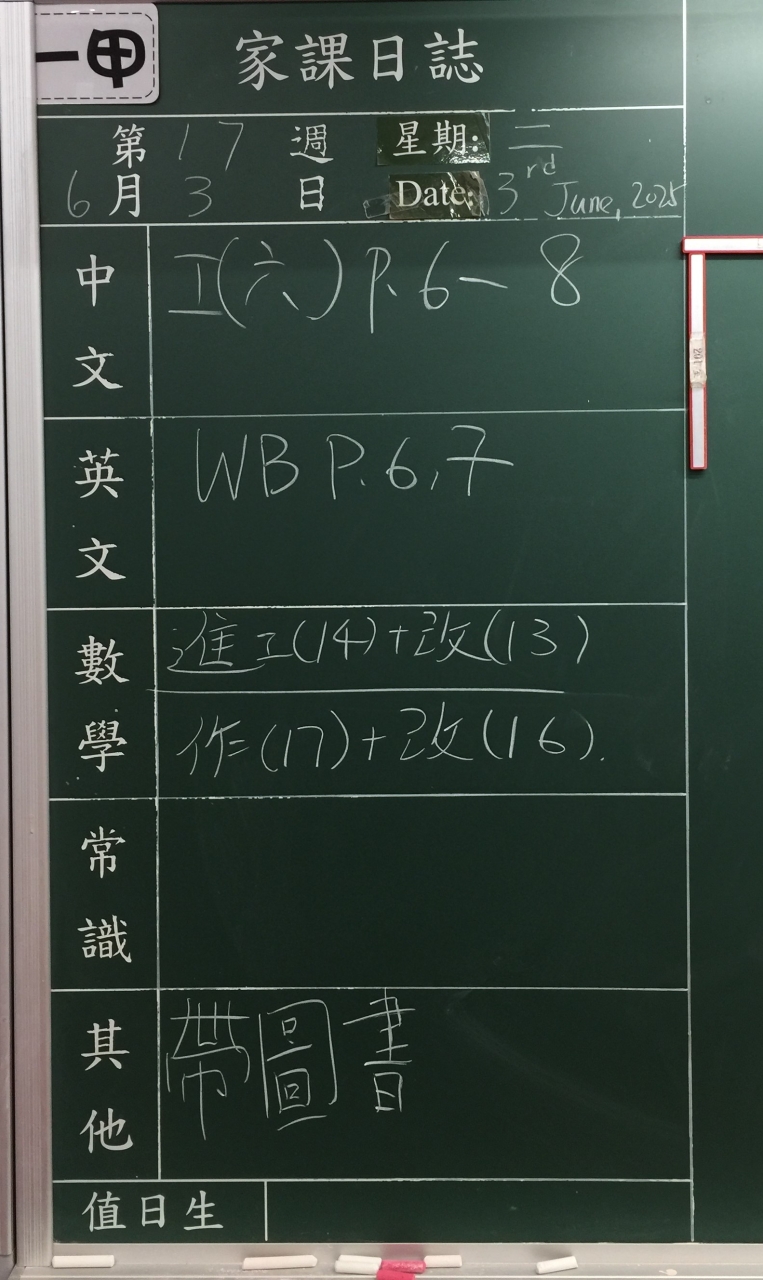 一甲
家課日誌
第 17 週 星期: 二
6 月 3 日 Date: 3rd June, 2025
中文 工(六) P.6－8
英文 WB P.6,7
數學 進工(14)+改(13)
作(17)+改(16).
常識
其他 帶圖書
值日生